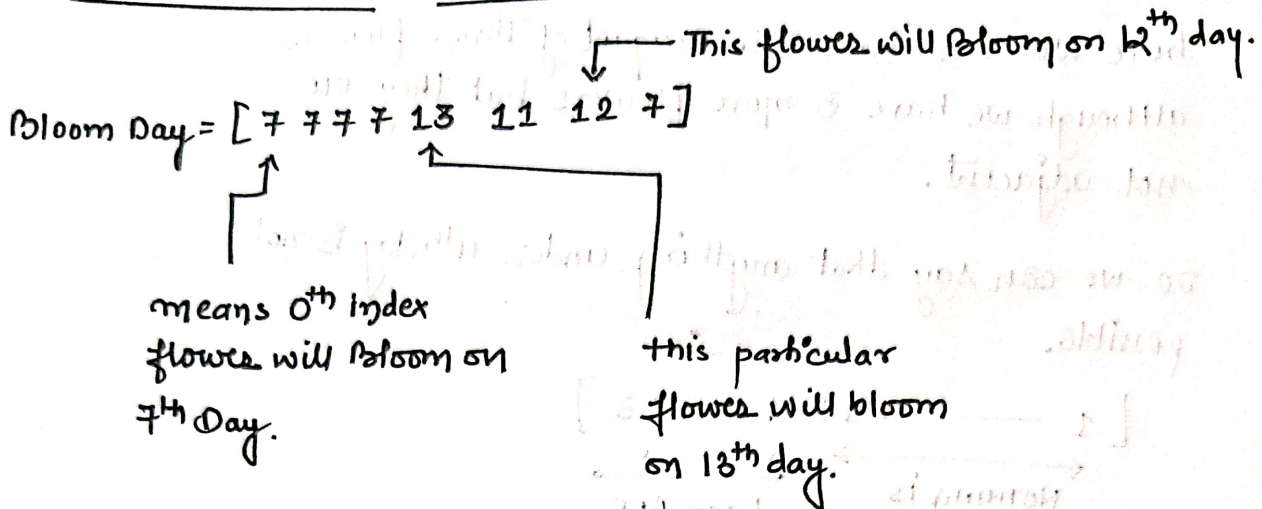 This flower will Bloom on 12th day.
Bloom Day = [7 7 7 7 13 11 12 7]
means 0th index
flower will Bloom on
7th Day.
this particular
flower will bloom
on 13th day.